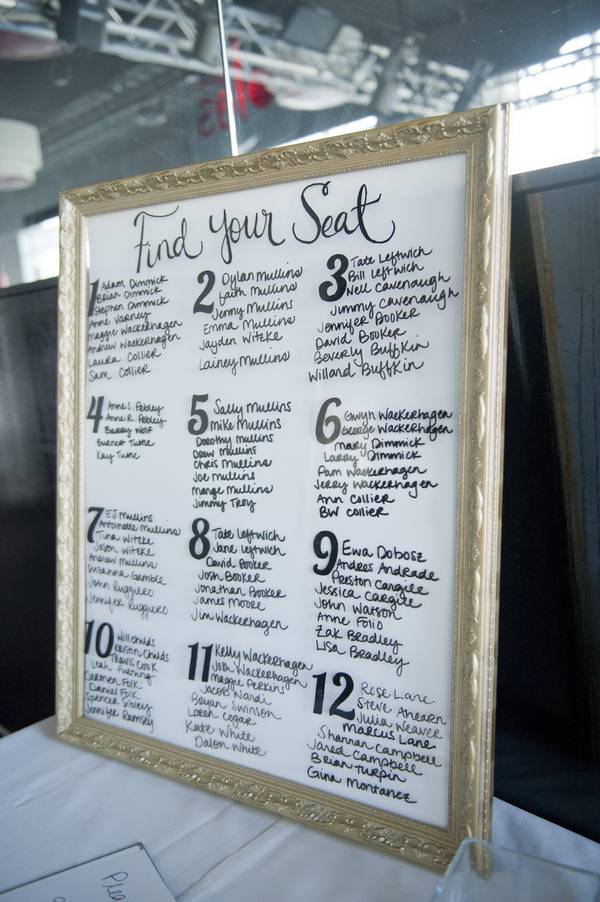 Find your Seat
1 Adam Dimmick
Brian Dimmick
Stephen Dimmick
Anne Varney
Maggie Wackerhagen
Andrew Wackerhagen
Laura Collier
Sam Collier
2 Dylan Mullins
Faith Mullins
Jenny Mullins
Emma Mullins
Jayden Witzke
Lainey Mullins
3 Tate Leftwich
Bill Leftwich
Nell Cavenaugh
Jimmy Cavenaugh
Jennifer Booker
David Booker
Beverly Buffkin
Willard Buffkin
4 Anne S. Pobley
Anne R. Pobley
Barry Wolf
Burnett Tuttle
Kay Tuttle
5 Sally Mullins
Mike Mullins
Dorothy Mullins
Drew Mullins
Chris Mullins
Joe Mullins
Marge Mullins
Jimmy Troy
6 Gwyn Wackerhagen
George Wackerhagen
Mary Dimmick
Larry Dimmick
Pam Wackerhagen
Jerry Wackerhagen
Ann Collier
BW Collier
7 EJ Mullins
Antoinette Mullins
Tina Witzke
Jason Witzke
Andrew Mullins
Suzanna Gamble
John Ruggiero
Jennifer Ruggiero
8 Tate Leftwich
Jane Leftwich
David Booker
Josh Booker
Jonathan Booker
James Moore
Jim Wackerhagen
9 Ewa Dobosz
Andres Andrade
Preston Cargile
Jessica Cargile
John Watson
Anne Folio
Zak Bradley
Lisa Bradley
10 Will Childs
Kristin Childs
Travis Cook
Leah
Carmen Folk
Daniel Folk
Spencer Sibley
Jennifer Ramsey
11 Kelly Wackerhagen
Josh Wackerhagen
Maggie Perkins
Jacob Nandi
Bryan Swinson
Loren Cegar
Kate White
Dalon White
12 Rose Lane
Steve Ahearn
Julia Weaver
Marcus Lane
Shannan Campbell
Jared Campbell
Brian Turpin
Gina Montanez